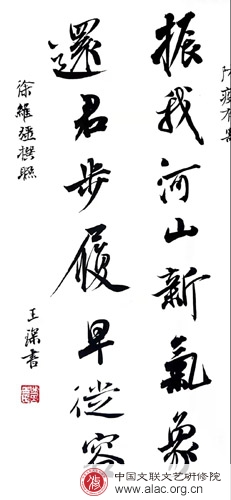 振我河山新氣象
還君步履早從容
徐維强撰聯
王深書
中国文联文艺研修院
www.alac.org.cn